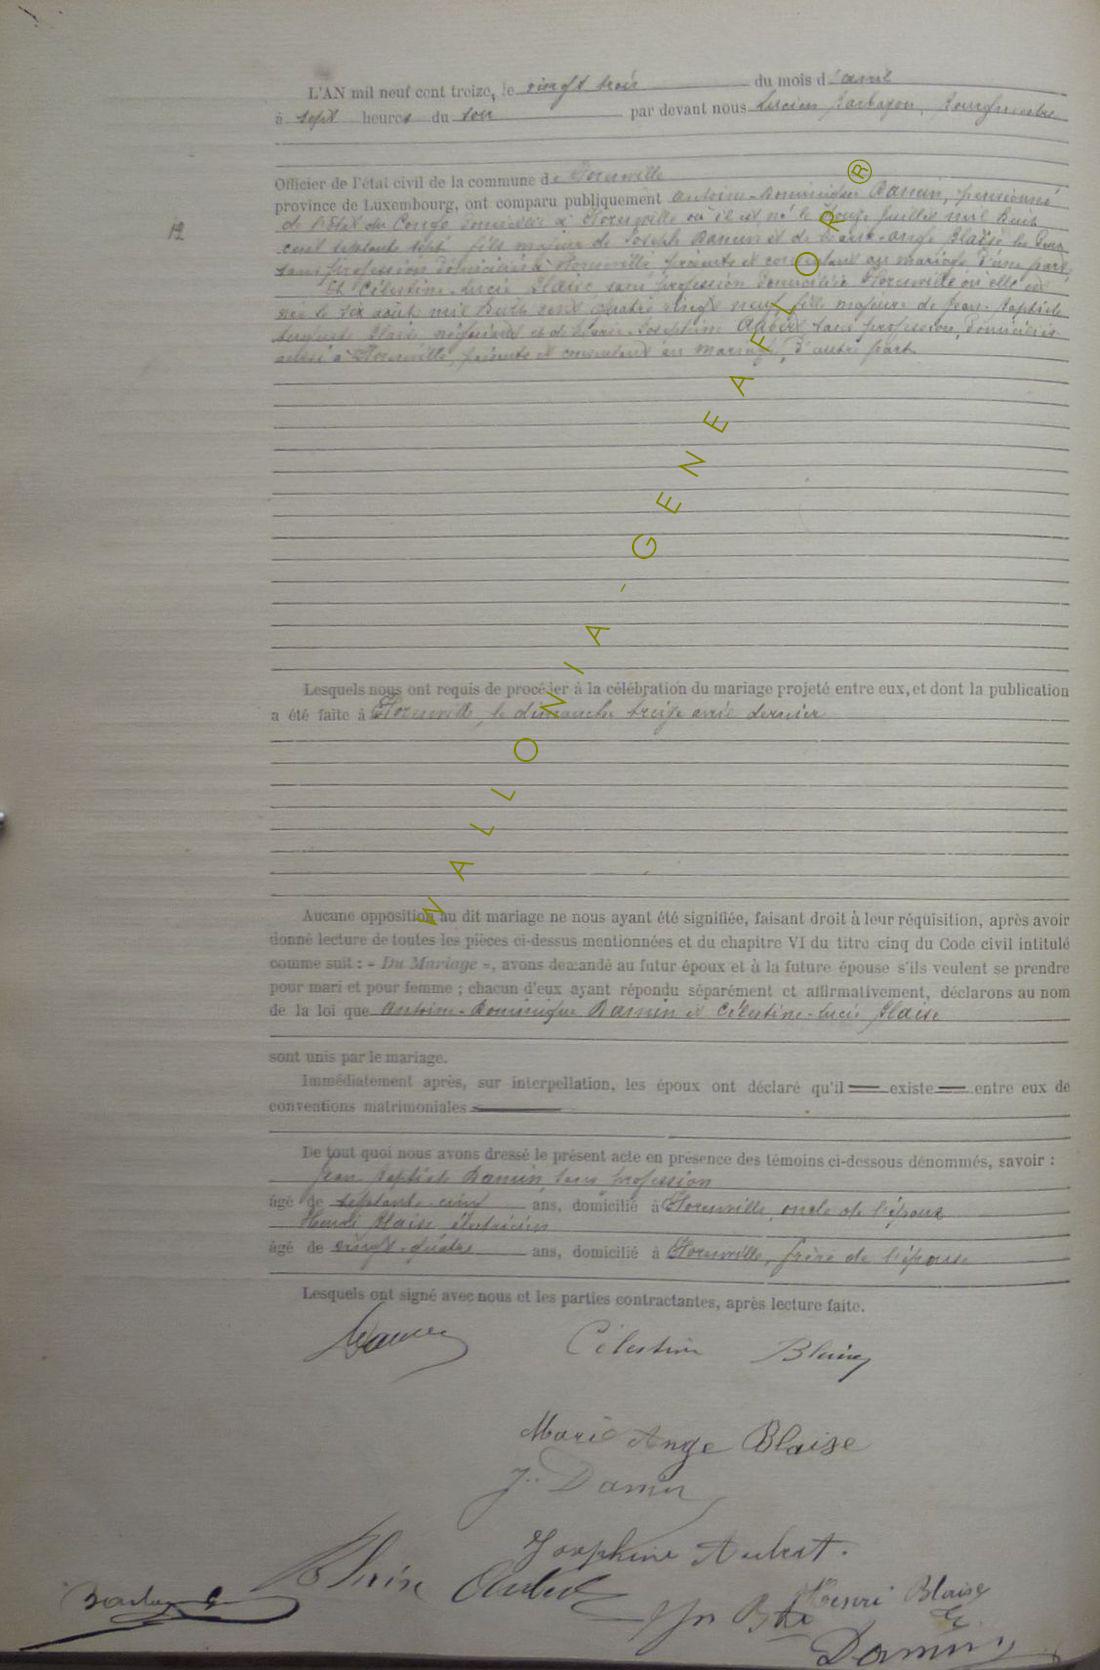 L'AN mil neuf cent treize, le vingt trois du mois d'avril
à sept heures du soir par devant nous Lucien Barbazon, Bourgmestre
Officier de l'état civil de la commune de Florenville
12
province de Luxembourg, ont comparu publiquement Antoine-Dominique Damin, pensionné
de l'Etat du Congo domicilié à Florenville où il est né le douze juillet mil huit
cent septante sept fils majeur de Joseph Damin et de Marie-Ange Blaise les deux
sans profession domiciliés à Florenville présents et consentant au mariage d'une part,
Et Célestine-Lucie Blaise sans profession domiciliée Florenville où elle est
née le six août mil huit cent quatre vingt neuf fille majeure de Jean-Baptiste
Blaise, négociant et de Josephine Aubert sans profession, domiciliés
aussi à Florenville, présents et consentant au mariage, d'autre part
Lesquels nous ont requis de procéder à la célébration du mariage projeté entre eux, et dont la publication
a été faite à Florenville, le dimanche treize avril dernier
Aucune opposition au dit mariage ne nous ayant été signifiée, faisant droit à leur réquisition, après avoir
donné lecture de toutes les pièces ci-dessus mentionnées et du chapitre VI du titre cinq du Code civil intitulé
comme suit : « Du Mariage », avons demandé au futur époux et à la future épouse s'ils veulent se prendre
pour mari et pour femme ; chacun d'eux ayant répondu séparément et affirmativement, déclarons au nom
de la loi que Antoine-Dominique Damin et Célestine-Lucie Blaise
sont unis par le mariage.
Immédiatement après, sur interpellation, les époux ont déclaré qu'il existe entre eux de
conventions matrimoniales
De tout quoi nous avons dressé le présent acte en présence des témoins ci-dessous dénommés, savoir :
Jean Baptiste Damin sans profession
âgé de septante cinq ans, domicilié à Florenville, oncle de l'époux
Henri Blaise électricien
âgé de vingt-quatre ans, domicilié à Florenville, frère de l'épouse
Lesquels ont signé avec nous et les parties contractantes, après lecture faite.
Célestine Blaise
Marie Ange Blaise
J. Damin
Josephine Aubert.
Blaise Aubert
Henri Blaise
Damin
WALLONIA-GENEAFLOR®